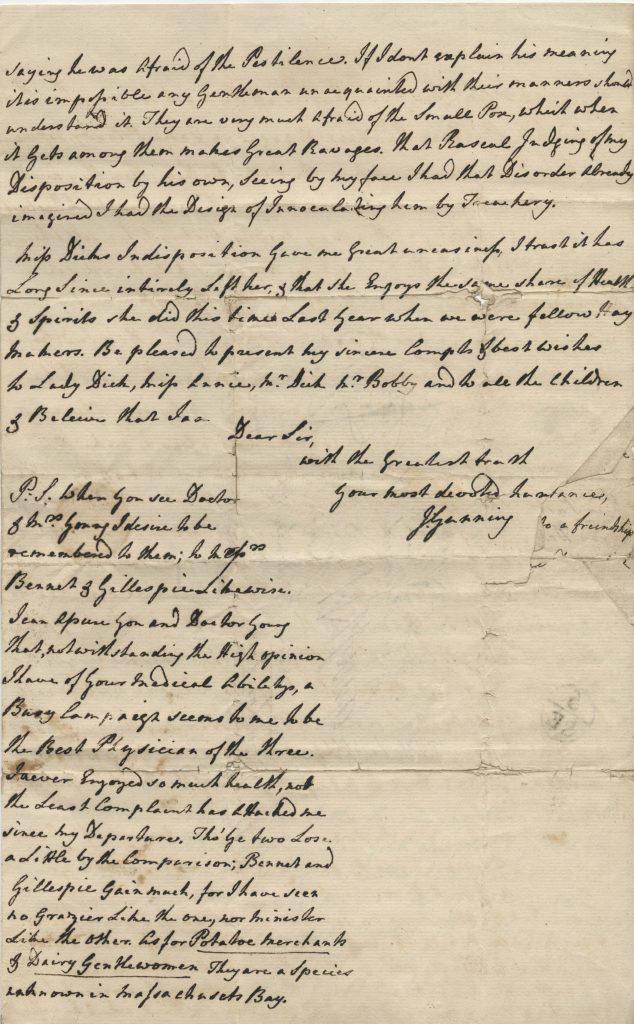 saying he was Afraid of the Pestilence. If I dont explain his meaning
it is impossible any Gentleman unacquainted with their manners should
understand it. They are very much Afraid of the Small Pox, which when
it Gets among them makes Great Ravages. That Rascal Judging of my
Disposition by his own, seeing by my face I had that Disorder Already
imagined I had the Design of Innoculating them by Treachery.
Miss Dicks Indisposition Gave me Great uneasiness, I trust it has
Long Since intirely Left her, & that she Enjoys the same share of Health
& Spirits she did this time Last Year when we were fellow Hay
makers. Be pleased to present my sincere Compts & best wishes
to Lady Dick, miss Annie, Mr. Dick Mr. Bobby and to all the Children
& Beleive that I am
Dear Sir,
with the Greatest truth
Your most devoted
JGunning
to a freindship
P.S. When You see Doctor
& Mrs Young I desire to be
remembered to them; to
Bennet & Gillespie Likewise.
I can Assure You and Doctor Young
that, notwithstanding the High opinion
I have of Your Medical Abilitys, a
Busy Campaign seems to me to be
the Best Physician of the three.
I never Enjoyed so much health, not
the Least Complaint has Attacked me
since my Departure. Tho' Ye two Lose
a Little by the Comparison; Bennet and
Gillespie Gain much, for I have seen
no Grazier Like the one, nor minister
Like the other. As for Potatoe Merchants
& Dairy Gentlewomen They are a Species
unknown in Massachusets Bay.